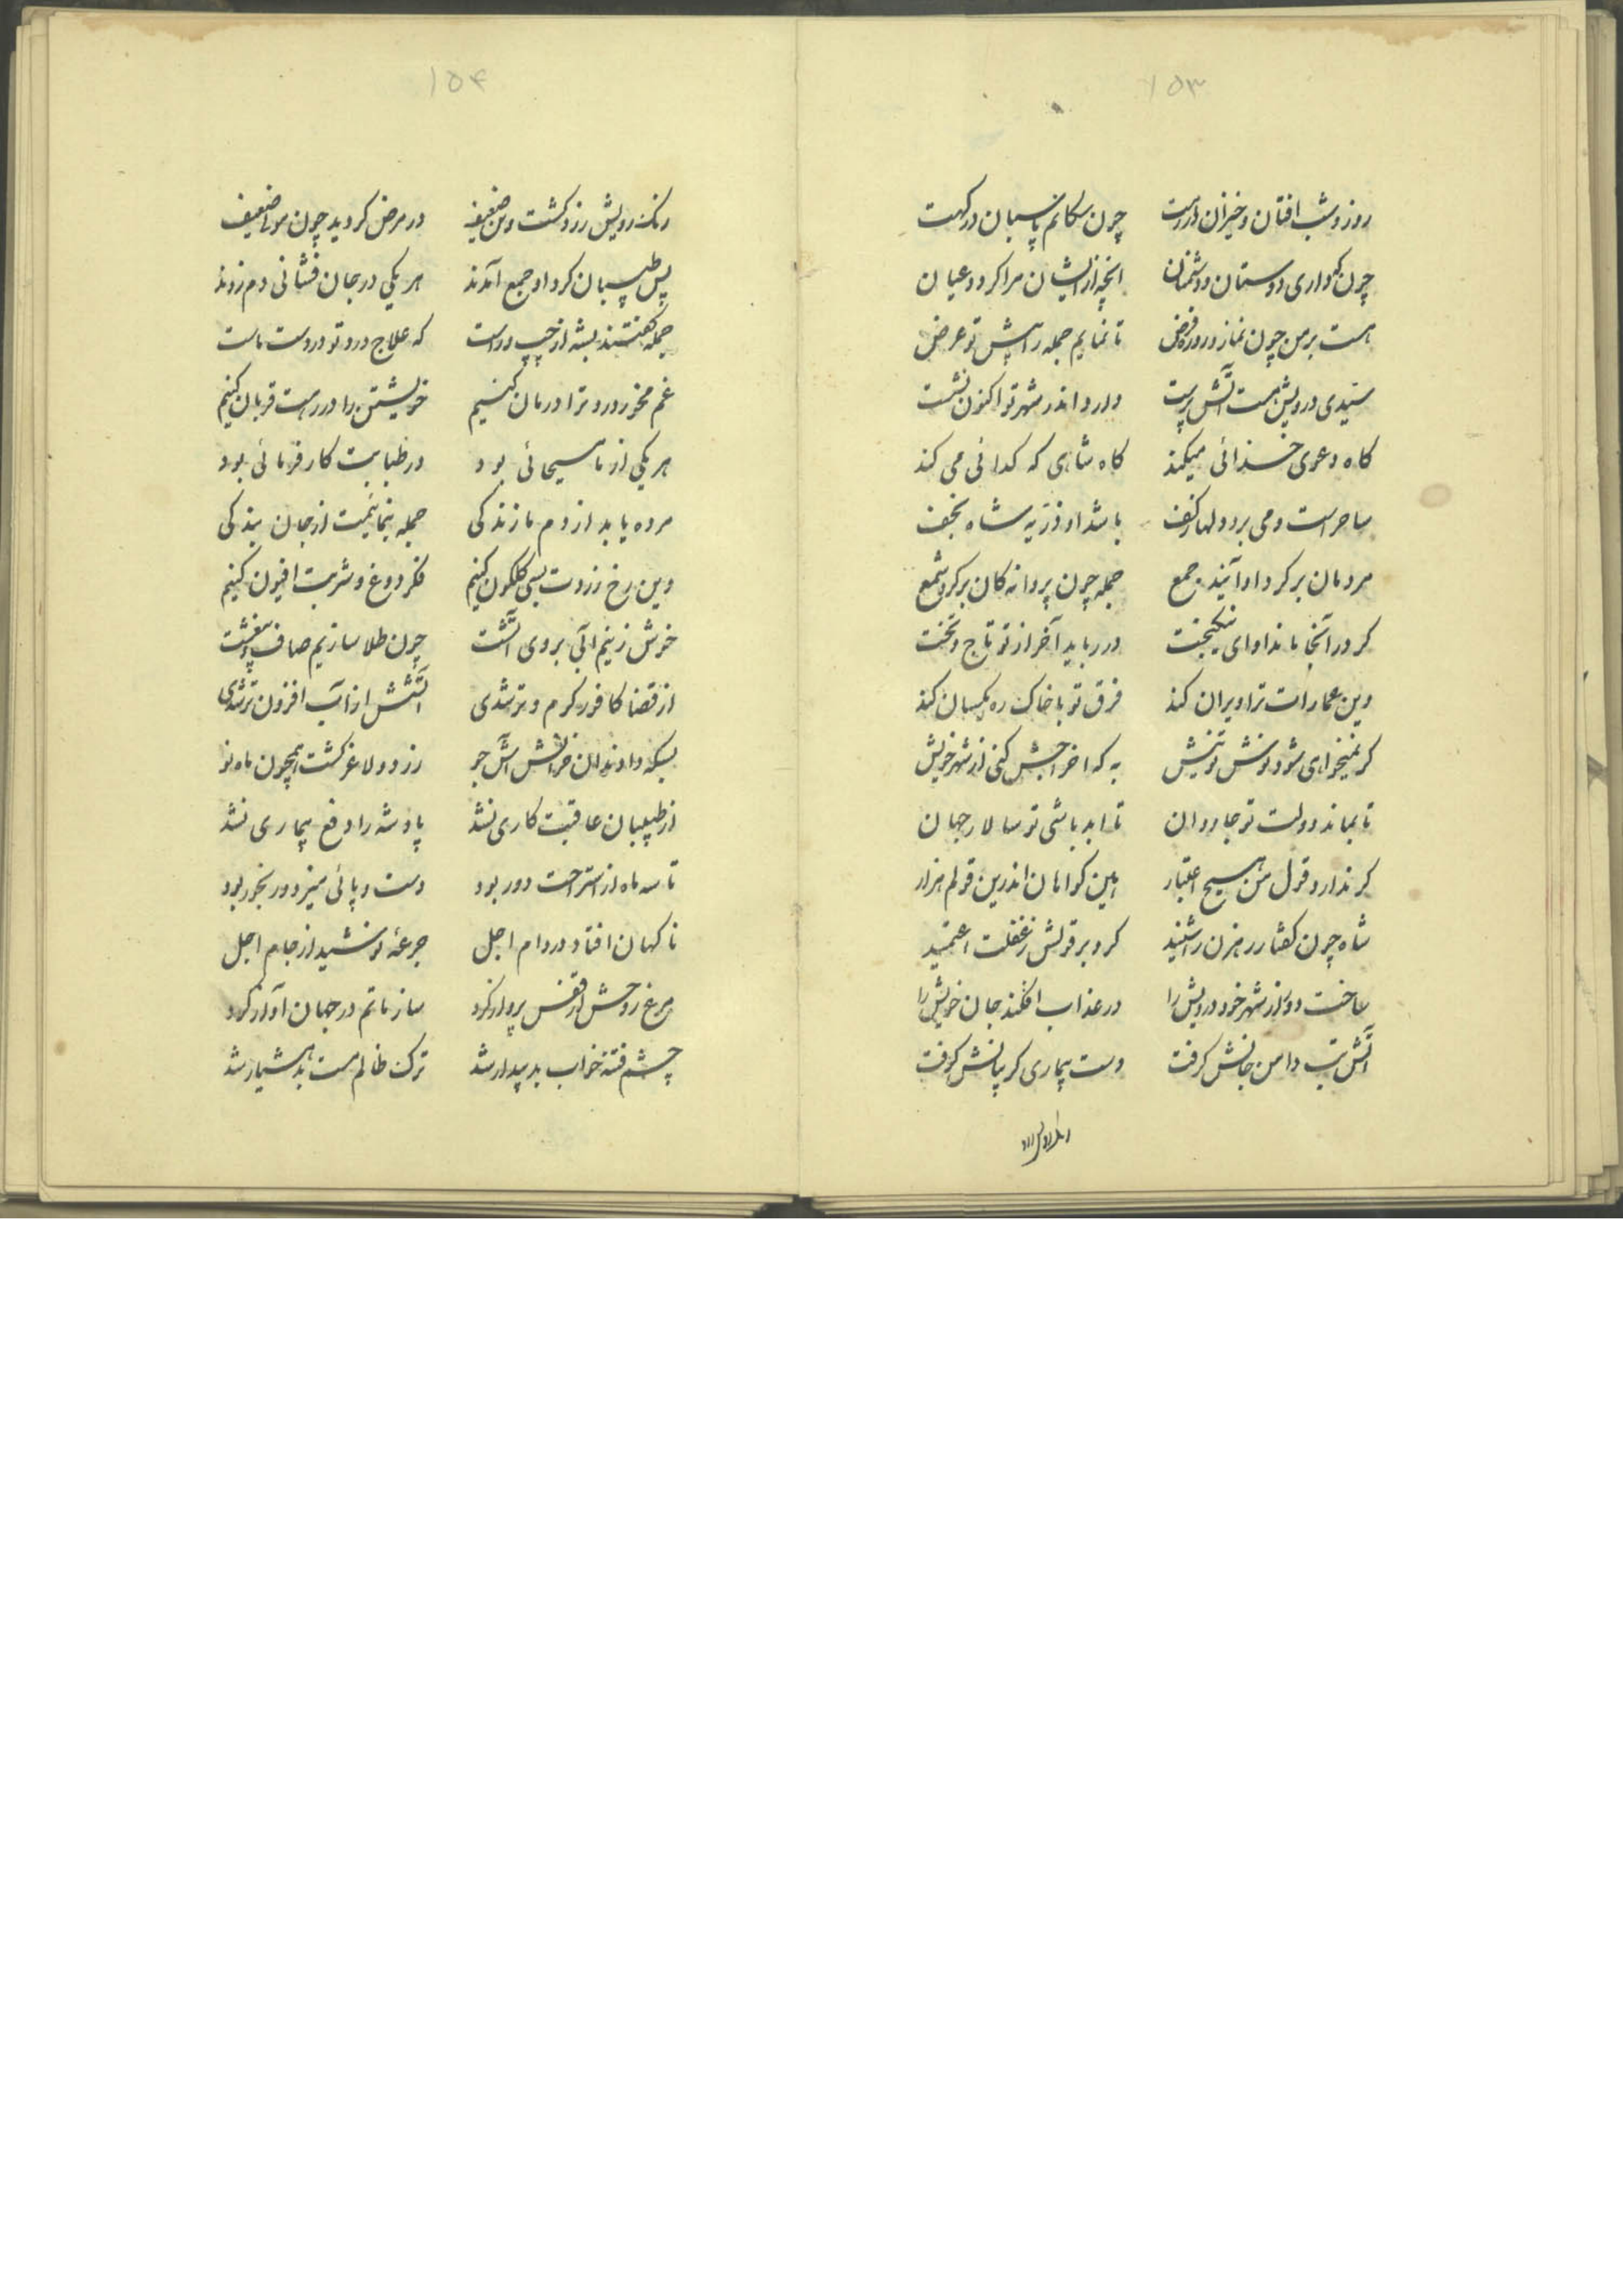 ۱۵۳
روز و شب افتان و خیزان در رهت چون سکانم پاسبان درکهت
چون که داری دوستان و دشمنان انچه از ایشان مرا کردد عیان
هست بر من چون نماز و روزه فرض تا نمایم جمله را پیش تو عرض
سیدی درویش هست آتش پرست دارد اندر شهر تو اکنون نشست
کاه دعوی خدائی میکند کاه شاهی که کدائی می کند
ساحر است و می برد دلها ز کف باشد او ذریه شاه نجف
مردمان بر کرد او آیند جمع جمله چون پروانه کان بر کرد شمع
کر در آنجا ماند او ای نیکبخت در رباید آخر از تو تاج و تخت
وین عمارات ترا ویران کند فرق تو با خاک ره یکسان کند
کر نمیخواهی شود نوش تو نیش به که اخراجش کنی از شهر خویش
تا بماند دولت تو جاودان تا ابد باشی تو سالار جهان
کر ندارد قول من هیچ اعتبار هین کواهان اندرین قولم هزار
شاه چون کفتار رهزن را شنید کرد بر قولش ز غفلت اعتمید
ساخت دور از شهر خود درویش را در عذاب افکند جان خویش را
آتش تب دامن جانش کرفت دست بیماری کریبانش کرفت
۱۵۴
رنک رویش زرد کشت و تن ضعیف در مرض کردید چون مو ضعیف
پس طبیبان کرد او جمع آمدند هر یکی در جان فشانی دم زدند
جمله کفتند بشه از چپ و راست که علاج درد تو در دست ماست
غم مخور درد ترا درمان کنیم خویشتن را در رهت قربان کنیم
هر یکی از ما مسیحائی بود در طبابت کار فرمائی بود
مرده یابد از دم ما زندکی جمله بنمائیمت از جان بندکی
وین رخ زردت بسی کلکون کنیم فکر دوغ و شربت افیون کنیم
خوش زنیم آبی بروی آتشت چون طلا سازیم صاف
از قضا کافور کرم و تر شدی آتشش از آب افزون تر شدی
بسکه دادند از آش جو زرد و لاغر کشت همچون ماه نو
از طبیبان عاقبت کاری نشد پادشه را دفع بیماری نشد
تا سه ماه از استراحت دور بود دست و پائی میزد و رنجور بود
ناکهان افتاد در دام اجل جرعهٔ نوشید از جام اجل
مرغ روحش از قفس پرواز کرد ساز ماتم در جهان آواز کرد
چشم فتنه خواب بد بیدار شد ترک ظالم مست بد هشیار شد